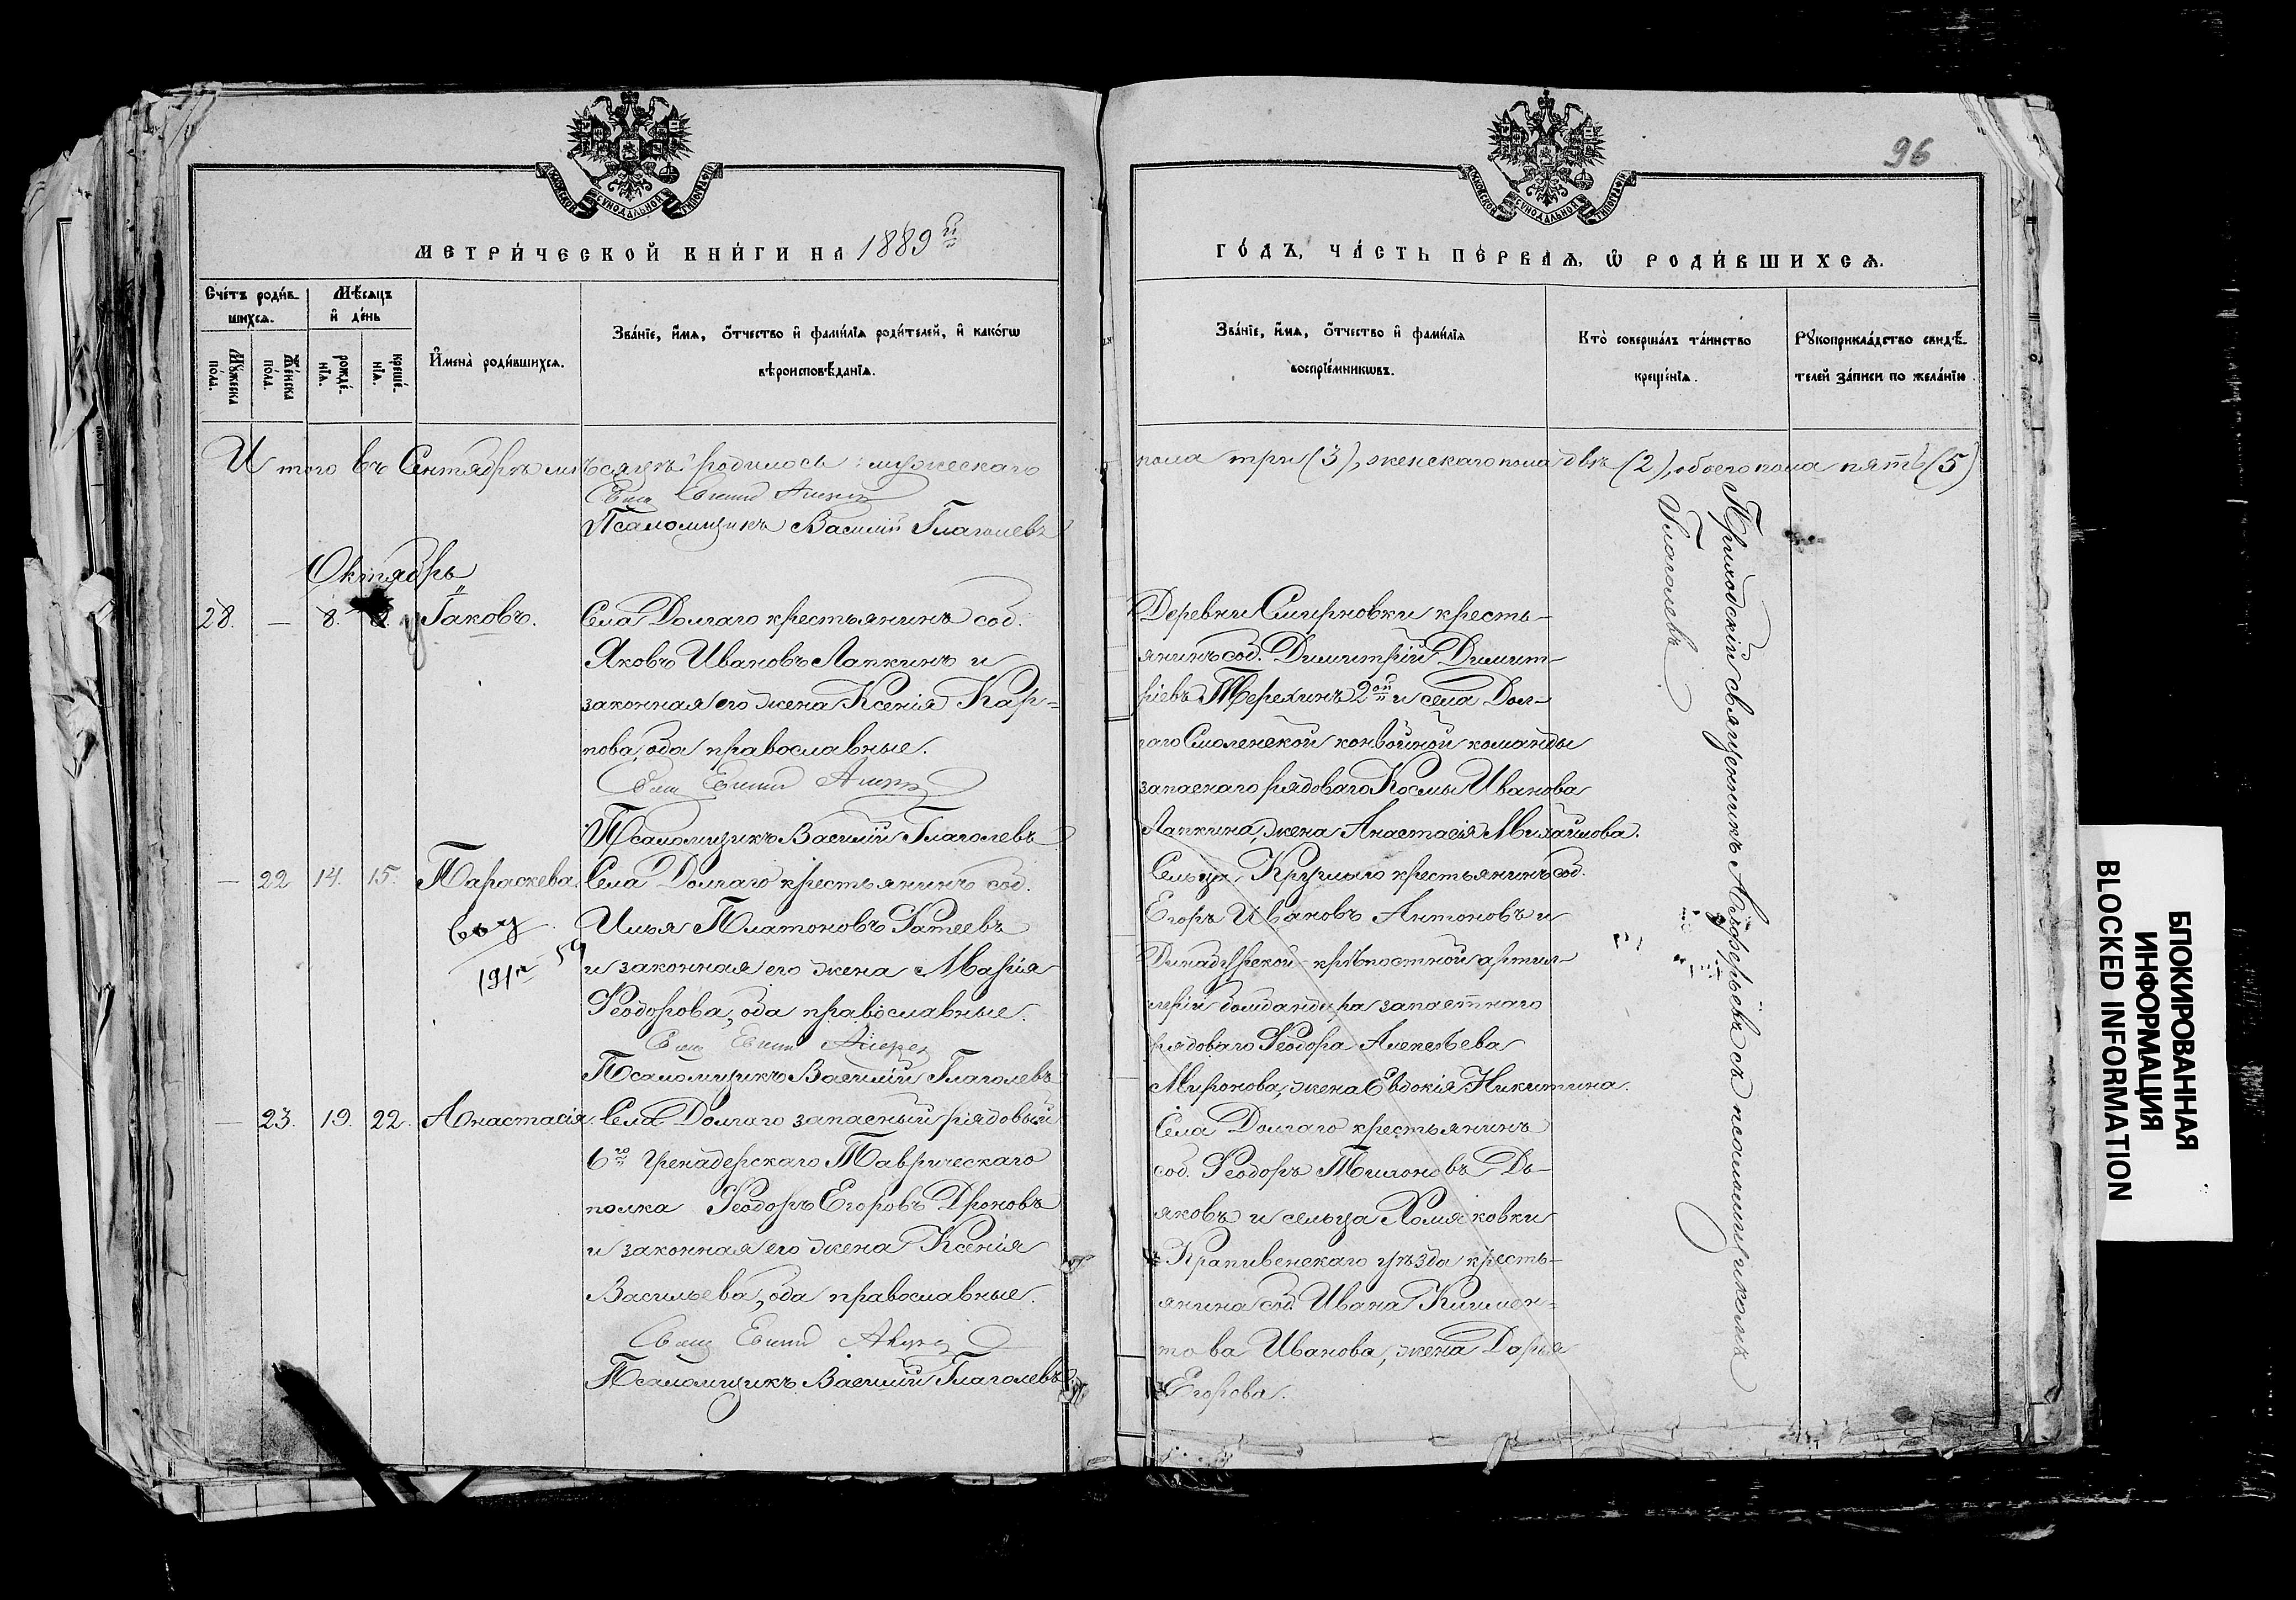 96
МОСКОВСКОЙ СѴНОДАЛЬНОЙ ТИПОГРАФІИ
МОСКОВСКОЙ СѴНОДАЛЬНОЙ ТИПОГРАФІИ
МЕТРИ́ЧЕСКОЙ КНИ́ГИ НА 1889й
ГО́ДЪ, ЧА́СТЬ ПЕ́РВАЯ, Ѡ РОДИ́ВШИХСЯ.
Сче́тъ роди́в-
шихся.
Мѣ́сяцъ
и҆ де́нь
Мꙋжеска
пола.
Же́нска
по́ла.
рожде́-
нїя.
креще́-
нїя.
И҆мена̀ роди́вшихся.
Зва́нїе, и҆́мя, ѻ҆́тчество и҆ фами́лїя роди́телей, и҆ како́гѡ
вѣроисповѣ́данїя.
Зва́нїе, и҆́мя, ѻ҆́тчество и҆ фами́лїя
воспрїе́мникѡвъ.
Кто̀ соверша́лъ та́инство
креще́нїя.
Рꙋкоприкла́дство свидѣ́-
телей за́писи по жела́нїю.
Итого въ Сентябрѣ мѣсяцѣ родилось: мужескаго
пола три (3), женскаго пола двѣ (2), обоего пола пять (5)
Псаломщикъ Василій Глаголевъ
Октябрь
28. — 8. 8. Іаковъ.
Села Долгаго крестьянинъ соб.
Яковъ Ивановъ Лапкинъ и
законная его жена Ксенія Кар=
пова, оба православные.
Псаломщикъ Василій Глаголевъ
Деревни Смирновки кресть-
янинъ соб. Димитрій Димит-
ріевъ Терехинъ 2ой и села Дол-
гаго Смоленской конвойной команды
запаснаго рядоваго Космы Иванова
Лапкина, жена Анастасія Михайлова.
— 22 14. 15. Параскева.
Села Долгаго крестьянинъ соб.
Илья Платоновъ Фатеевъ
и законная его жена Марія
Ѳеодорова, оба православные.
Псаломщикъ Василій Глаголевъ
Сельца Круглаго крестьянинъ соб.
Егоръ Ивановъ Антоновъ и
Динабургской крѣпостной артил-
леріи бомбандира запастнаго
рядоваго Ѳеодора Алексѣева
Миронова, жена Евдокія Никитина.
— 23. 19. 22. Анастасія.
Села Долгаго запасный рядовый
6го Гренадерскаго Таврическаго
полка Ѳеодоръ Егоровъ Дроновъ
и законная его жена Ксенія
Васильева, оба православные.
Псаломщикъ Василій Глаголевъ
Села Долгаго крестьянинъ
соб. Ѳеодоръ Тихоновъ Дь-
яковъ и сельца Хомяковки
Крапивенскаго уѣзда кресть-
янина соб Ивана Климен-
това Иванова, жена Дарья
Егорова.
Приходскій священникъ съ псаломщикомъ
Глаголевъ.
БЛОКИРОВАННАЯ
ИНФОРМАЦИЯ
BLOCKED INFORMATION